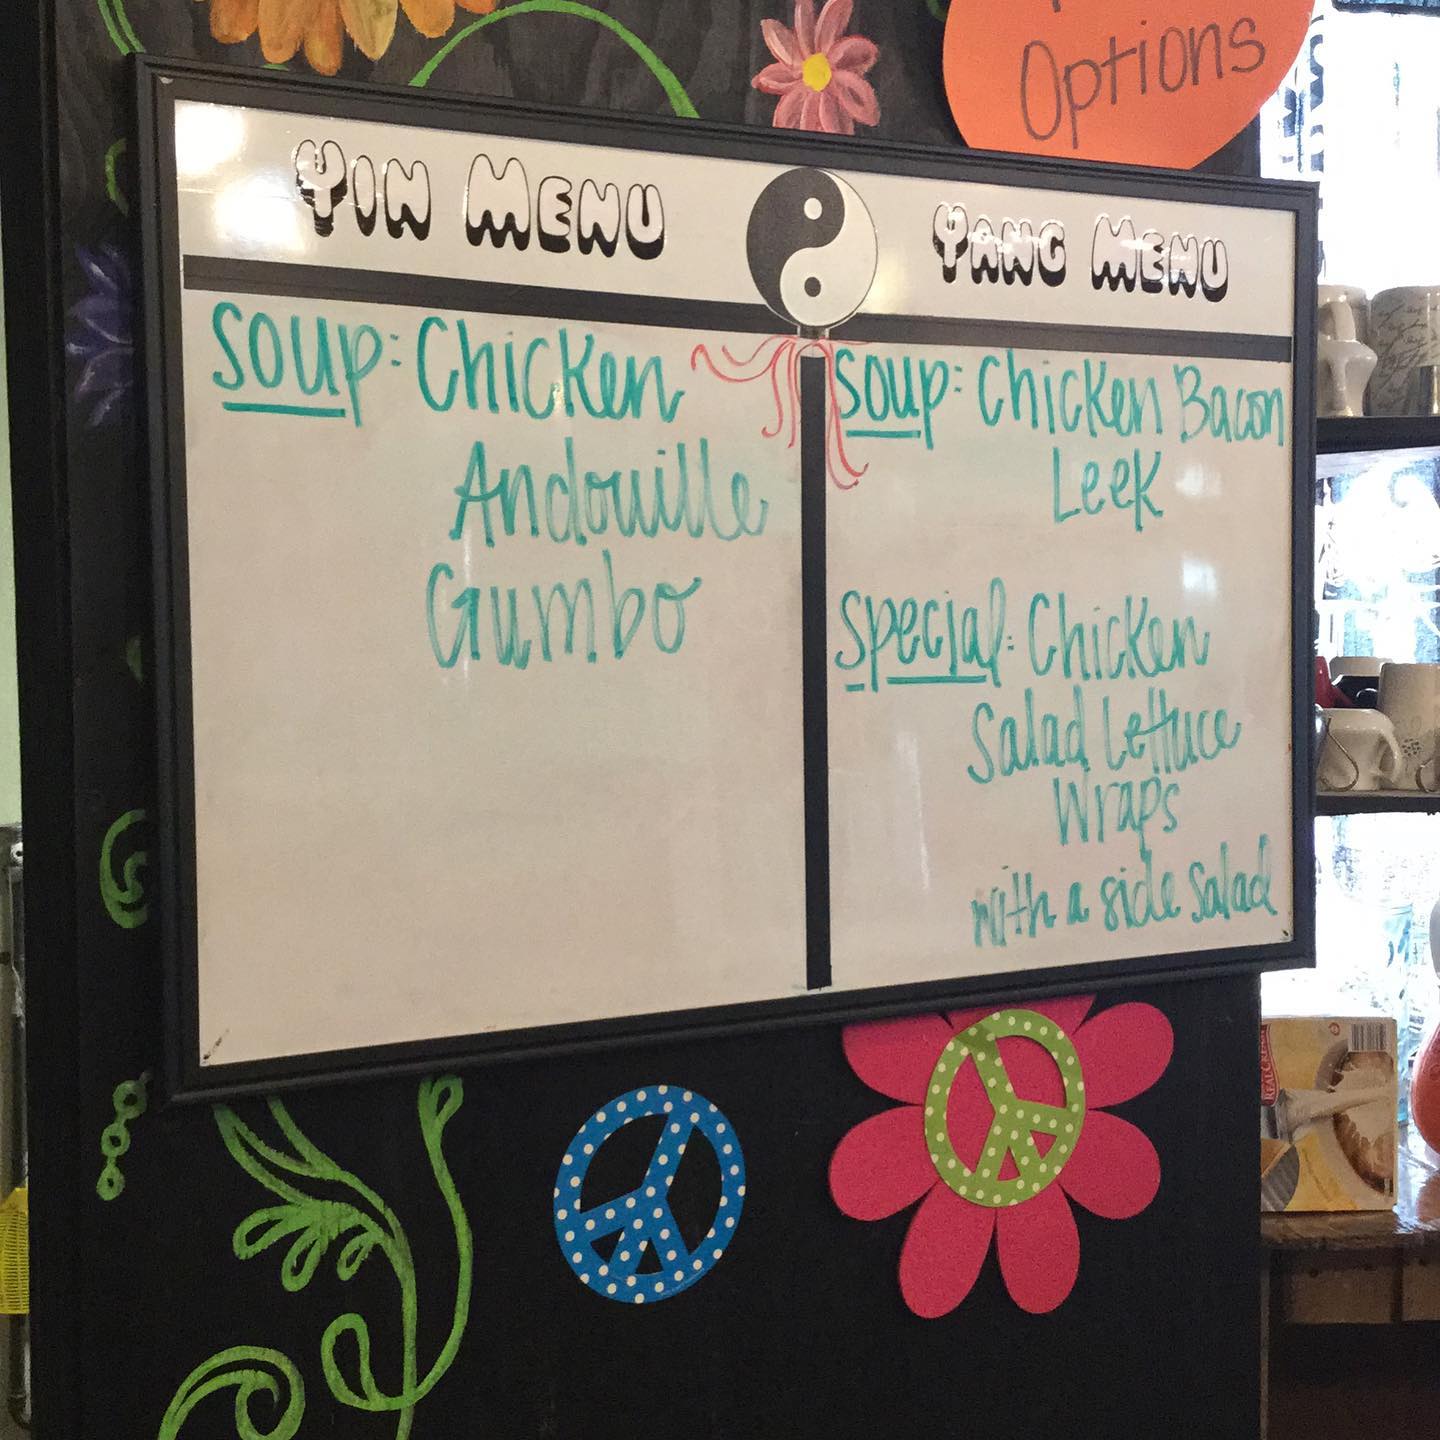 Options
Yin Menu
Soup: Chicken
Andouille
Gumbo
Yang Menu
Soup: Chicken Bacon
Leek
Special: Chicken
Salad Lettuce
Wraps
with a side salad